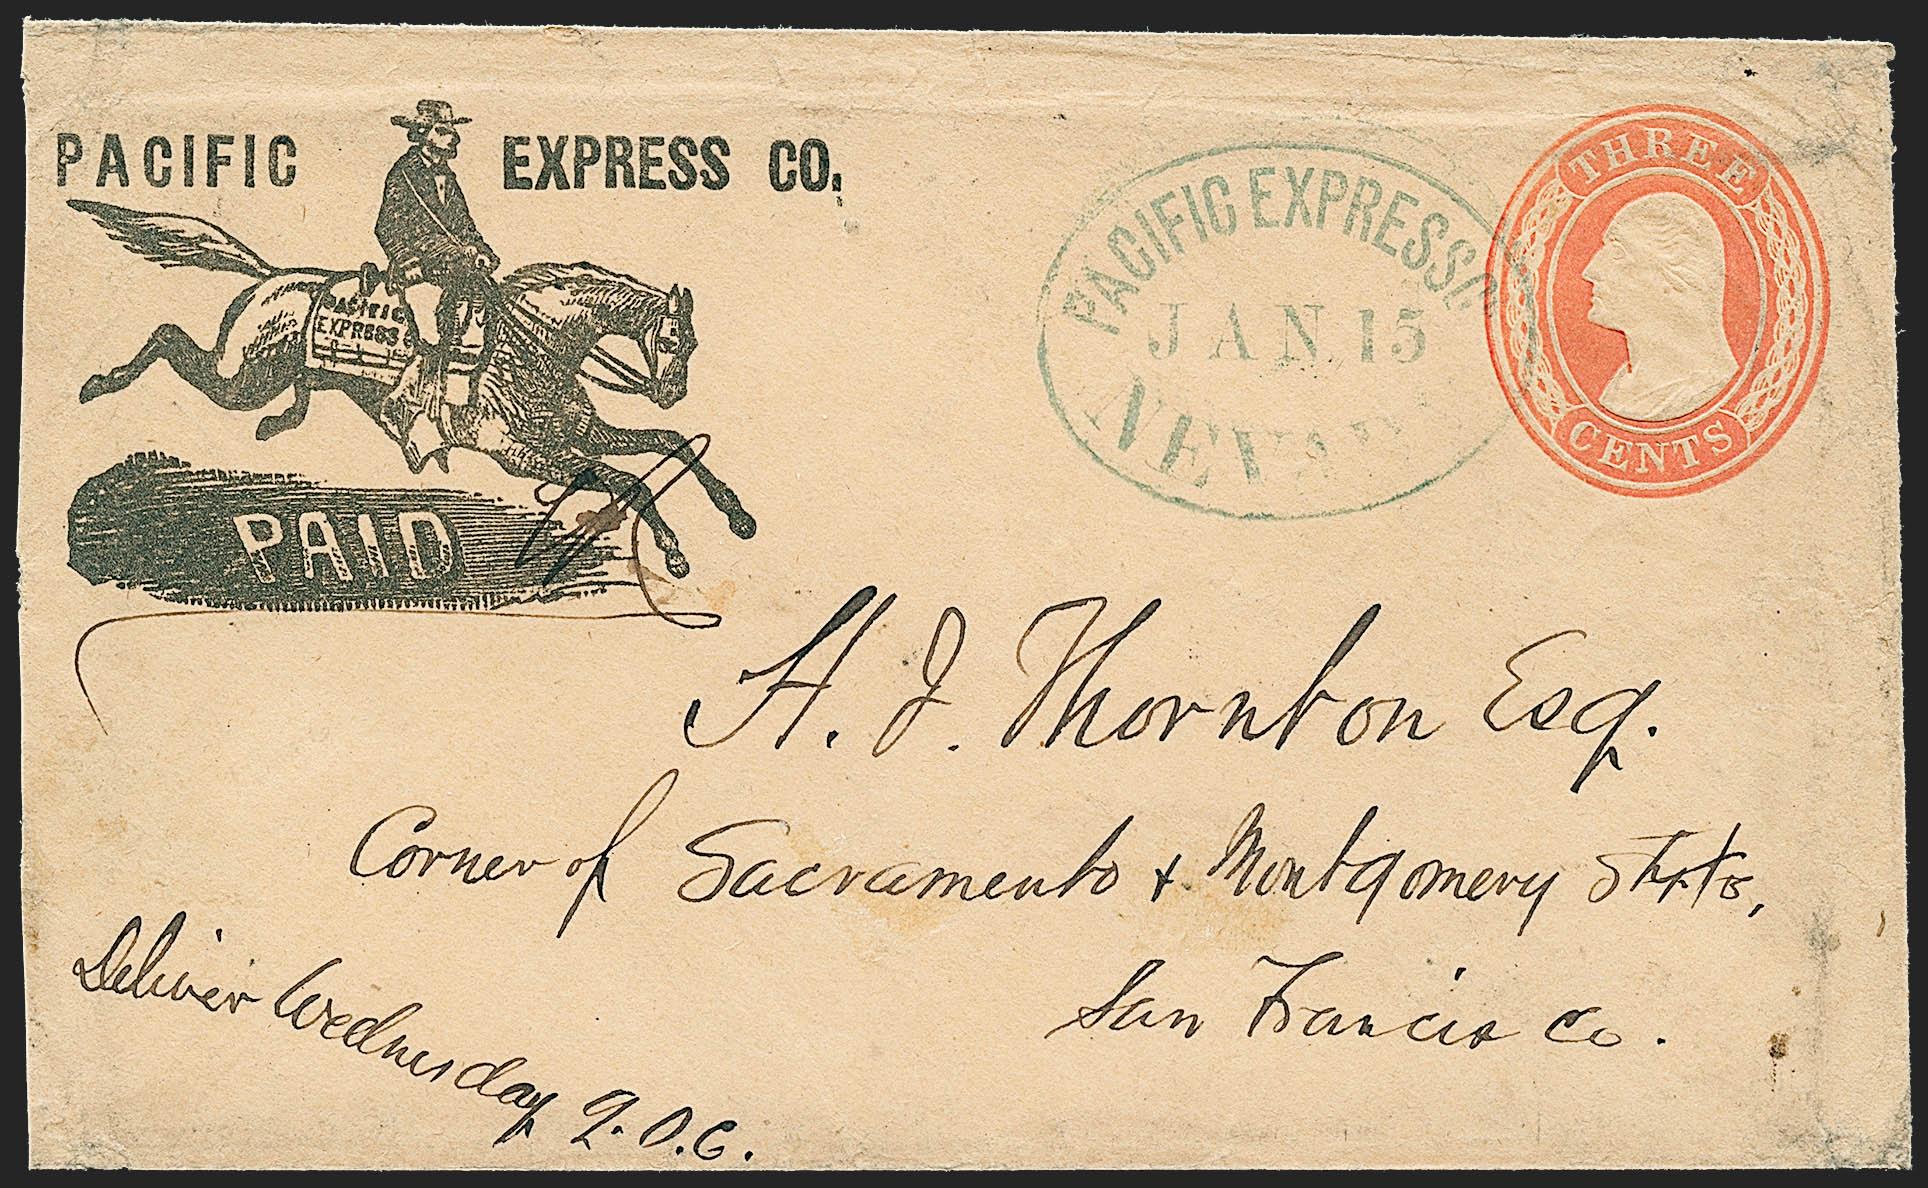 PACIFIC EXPRESS CO.
PACIFIC
EXPRESS C
PAID
PACIFIC EXPRESS C
JAN 15
NEVADA
THREE
CENTS
H. J. Thornton Esq.
Corner of Sacramento + Montgomery
San Francis co.
Deliver Wednesday